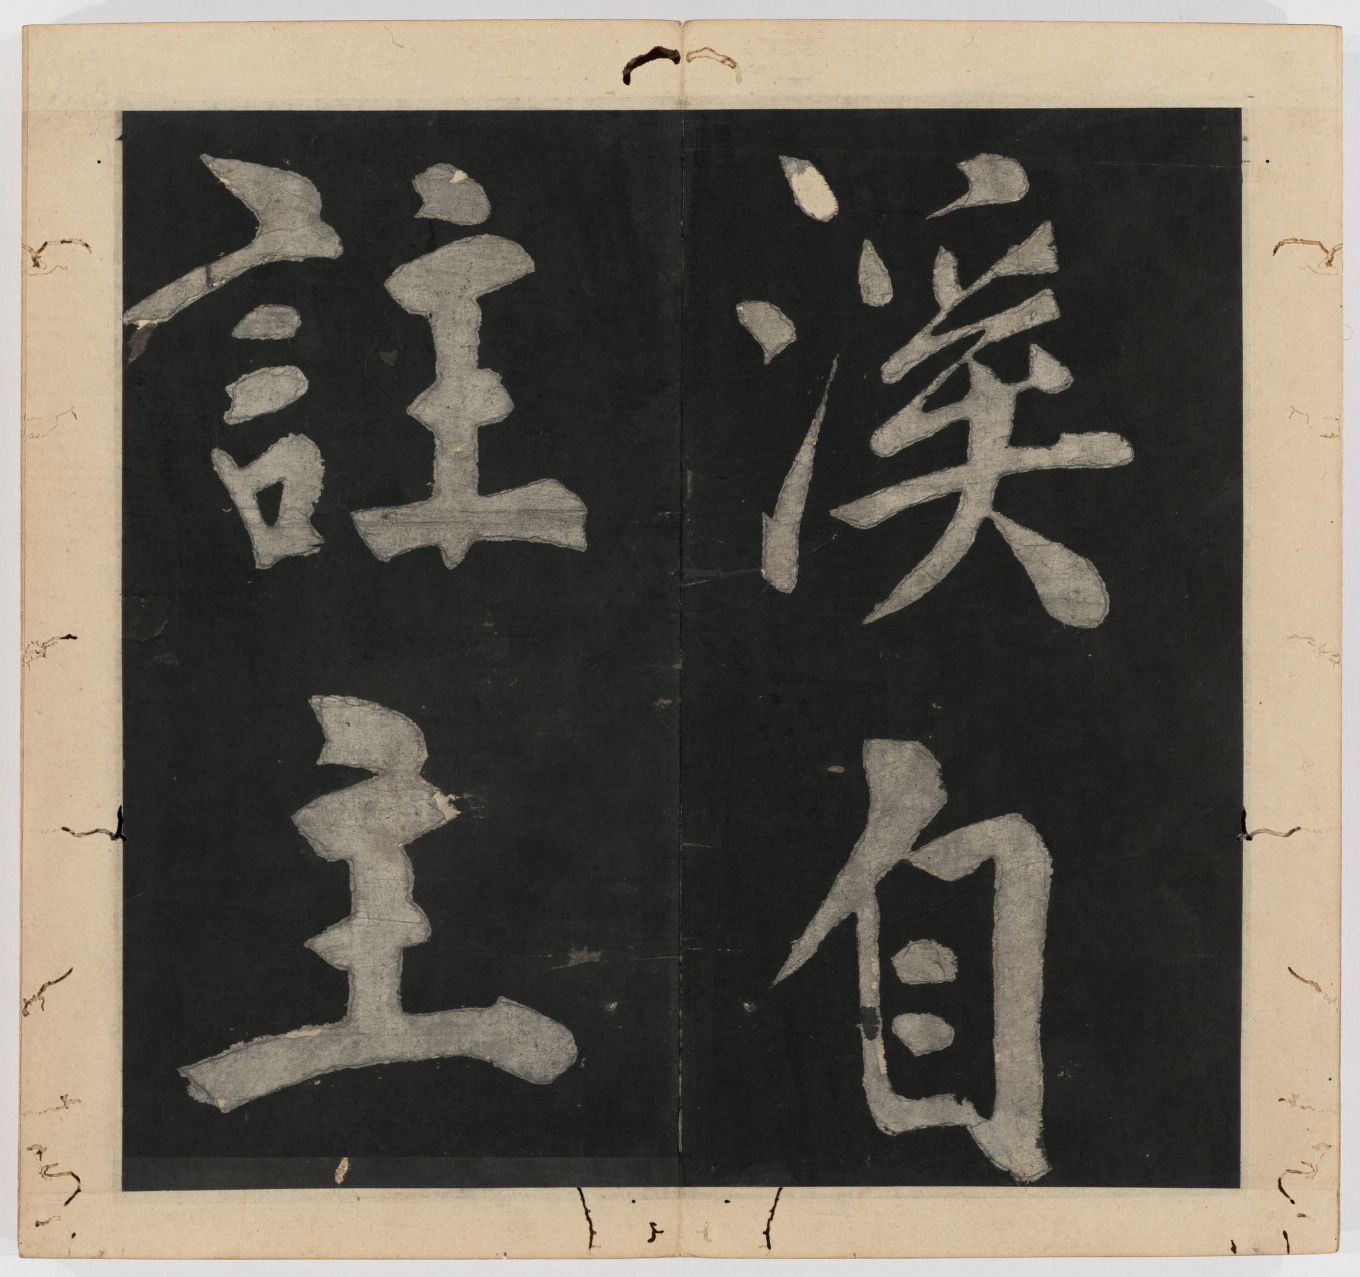 溪自
註主